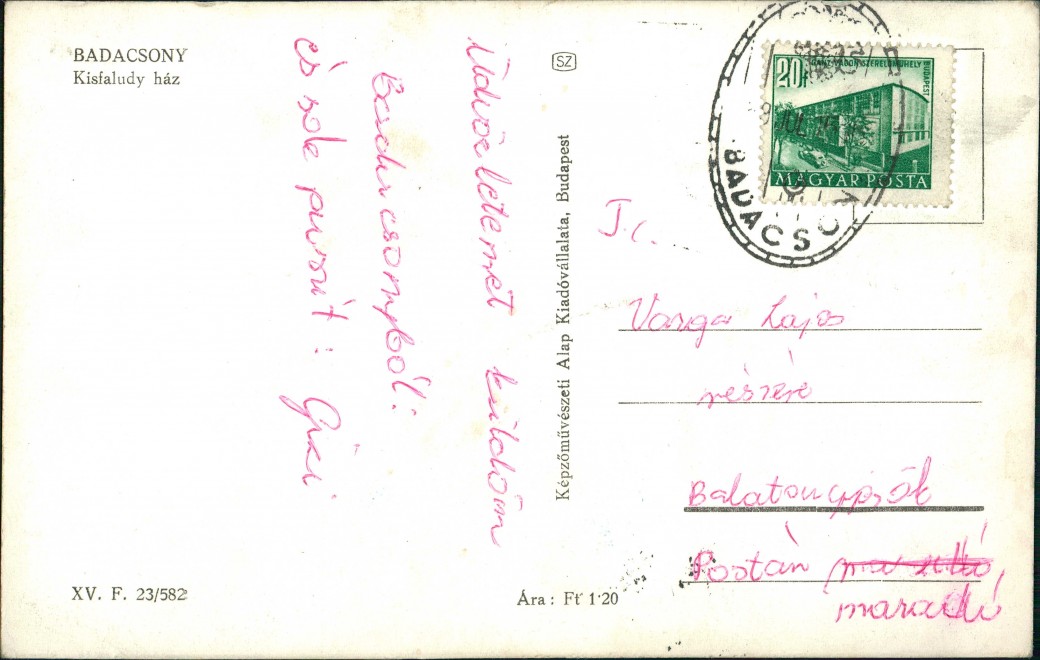 BADACSONY
Kisfaludy ház
Üdvözletemet küldöm
Badacsonyból:
és sok puszit: Gizi
XV. F. 23/582
SZ
Képzőművészeti Alap Kiadóvállalata, Budapest
Ára: Ft 1·20
20f
BUDAPEST
MAGYAR POSTA
BADACSONY
JUL
T.c.
Varga Lajos
részére
Balatongyörök
Postán maradó,
maradó